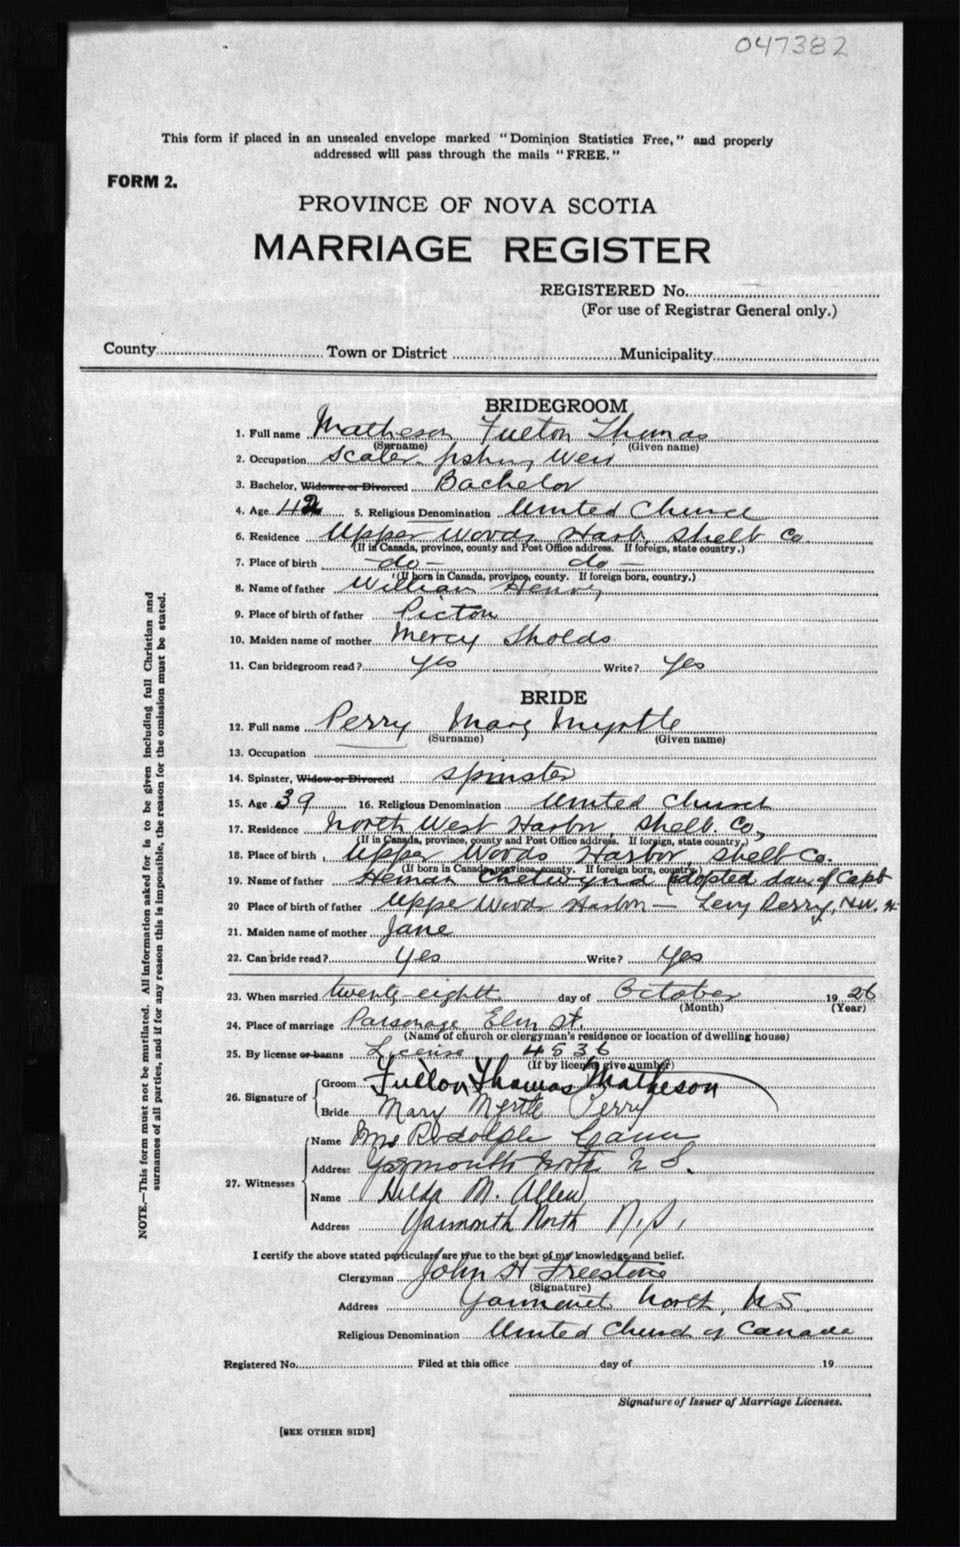 047382
This form if placed in an unsealed envelope marked "Dominion Statistics Free," and properly
addressed will pass through the mails "FREE."
FORM 2.
PROVINCE OF NOVA SCOTIA
MARRIAGE REGISTER
REGISTERED No.
(For use of Registrar General only.)
County Town or District Municipality
BRIDEGROOM
1. Full name Matheson Fulton Thomas
(Surname) (Given name)
2. Occupation Scaler fishing
3. Bachelor, Widower or Divorced Bachelor
4. Age 42 5. Religious Denomination United Church
6. Residence Upper Woods Harb. Shelb Co
(If in Canada, province, county and Post Office address. If foreign, state country.)
7. Place of birth -do- do-
(If born in Canada, province, county. If foreign born, country.)
8. Name of father William Henry
9. Place of birth of father Pictou
10. Maiden name of mother Mercy Sholds
11. Can bridegroom read? Yes Write? Yes
BRIDE
12. Full name Perry Mary Myrtle
(Surname) (Given name)
13. Occupation
14. Spinster, Widow or Divorced Spinster
15. Age 39 16. Religious Denomination United Church
17. Residence North West Harbor, Shelb. Co,
(If in Canada, province, county and Post Office address. If foreign, state country.)
18. Place of birth Upper Woods Harbor, Shelb Co.
(If born in Canada, province, county. If foreign born, country.)
19. Name of father Heman Chetwynd (adopted dau of Capt
20 Place of birth of father Upper Woods Harbor — Levy Perry, N.W. H.
21. Maiden name of mother Jane
22. Can bride read? Yes Write? Yes
23. When married twenty-eighth day of October 1926
(Month) (Year)
24. Place of marriage Parsonage Elm St.
(Name of church or clergyman's residence or location of dwelling house)
25. By license or banns License 4536
(If by license give number)
26. Signature of Groom Fulton Thomas Matheson
Bride Mary Myrtle Perry
27. Witnesses Name Mrs Rodolph
Address Yarmouth North N S.
Name Hilda M. Allen
Address Yarmouth North N.S.
I certify the above stated particulars are true to the best of my knowledge and belief.
Clergyman John H Freestone
(Signature)
Address Yarmouth North, N.S.
Religious Denomination United Church of Canada
Registered No. Filed at this office day of 19
Signature of Issuer of Marriage Licenses.
[SEE OTHER SIDE]
NOTE.—This form must not be mutilated. All information asked for is to be given including full Christian and
surnames of all parties, and if for any reason this is impossible, the reason for the omission must be stated.